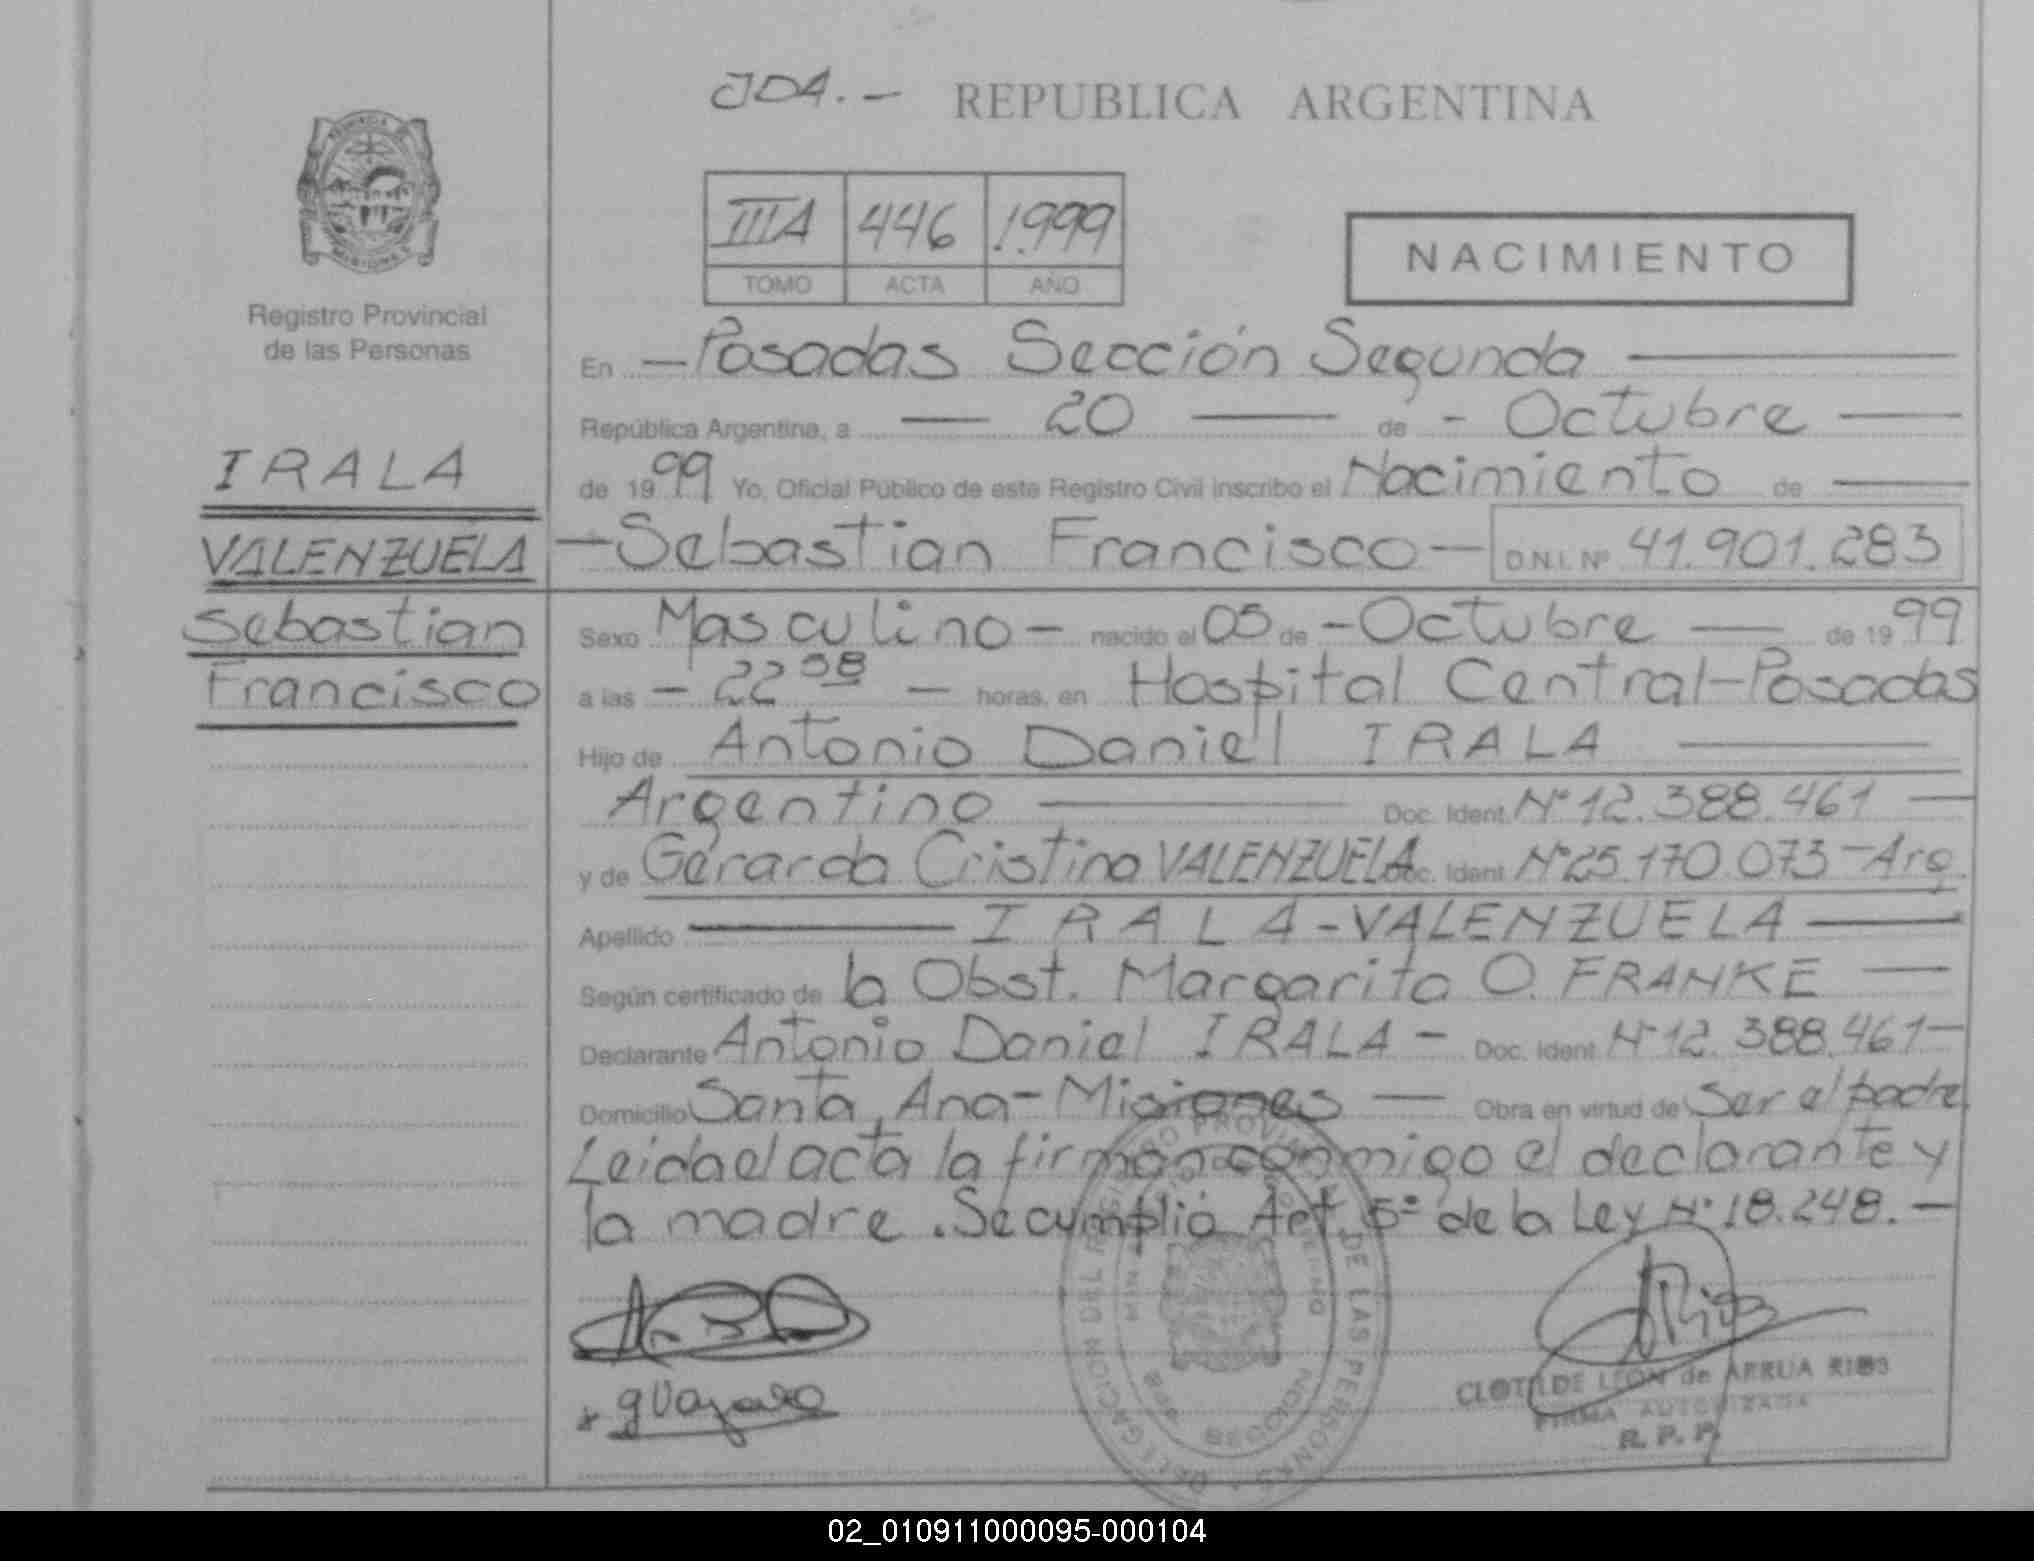 JDA.- REPUBLICA ARGENTINA
IIIA 446 1.999
TOMO ACTA AÑO
NACIMIENTO
PROVINCIA
MISIONES
Registro Provincial
de las Personas
IRALA
VALENZUELA
Sebastian
Francisco
En - Posadas Sección Segunda
República Argentina, a — 20 — de - Octubre —
de 1999 Yo, Oficial Público de este Registro Civil inscribo el Nacimiento de —
— Sebastian Francisco — D.N.I. Nº 41.901.283
Sexo Masculino - nacido el 05 de - Octubre — de 1999
a las - 22 58 - horas, en Hospital Central - Posadas
Hijo de Antonio Daniel IRALA —
Argentino — Doc. Ident. Nº 12.388.461 —
y de Gerarda Cristina VALENZUELA Doc. Ident. Nº 25.170.073 - Arg.
Apellido — IRALA - VALENZUELA —
Según certificado de la Obst. Margarita O. FRANKE —
Declarante Antonio Daniel IRALA - Doc. Ident. Nº 12.388.461 -
Domicilio Santa Ana - Misiones — Obra en virtud de Ser el padre.
Leida el acta la firman conmigo el declarante y
la madre. Se cumplió Art. 5º de la Ley Nº 18.248. -
DELEGACION DEL REGISTRO PROVINCIAL DE LAS PERSONAS
CLOTILDE LEON de ARRUA RIOS
FIRMA AUTORIZADA
R. P. P.
02_010911000095-000104